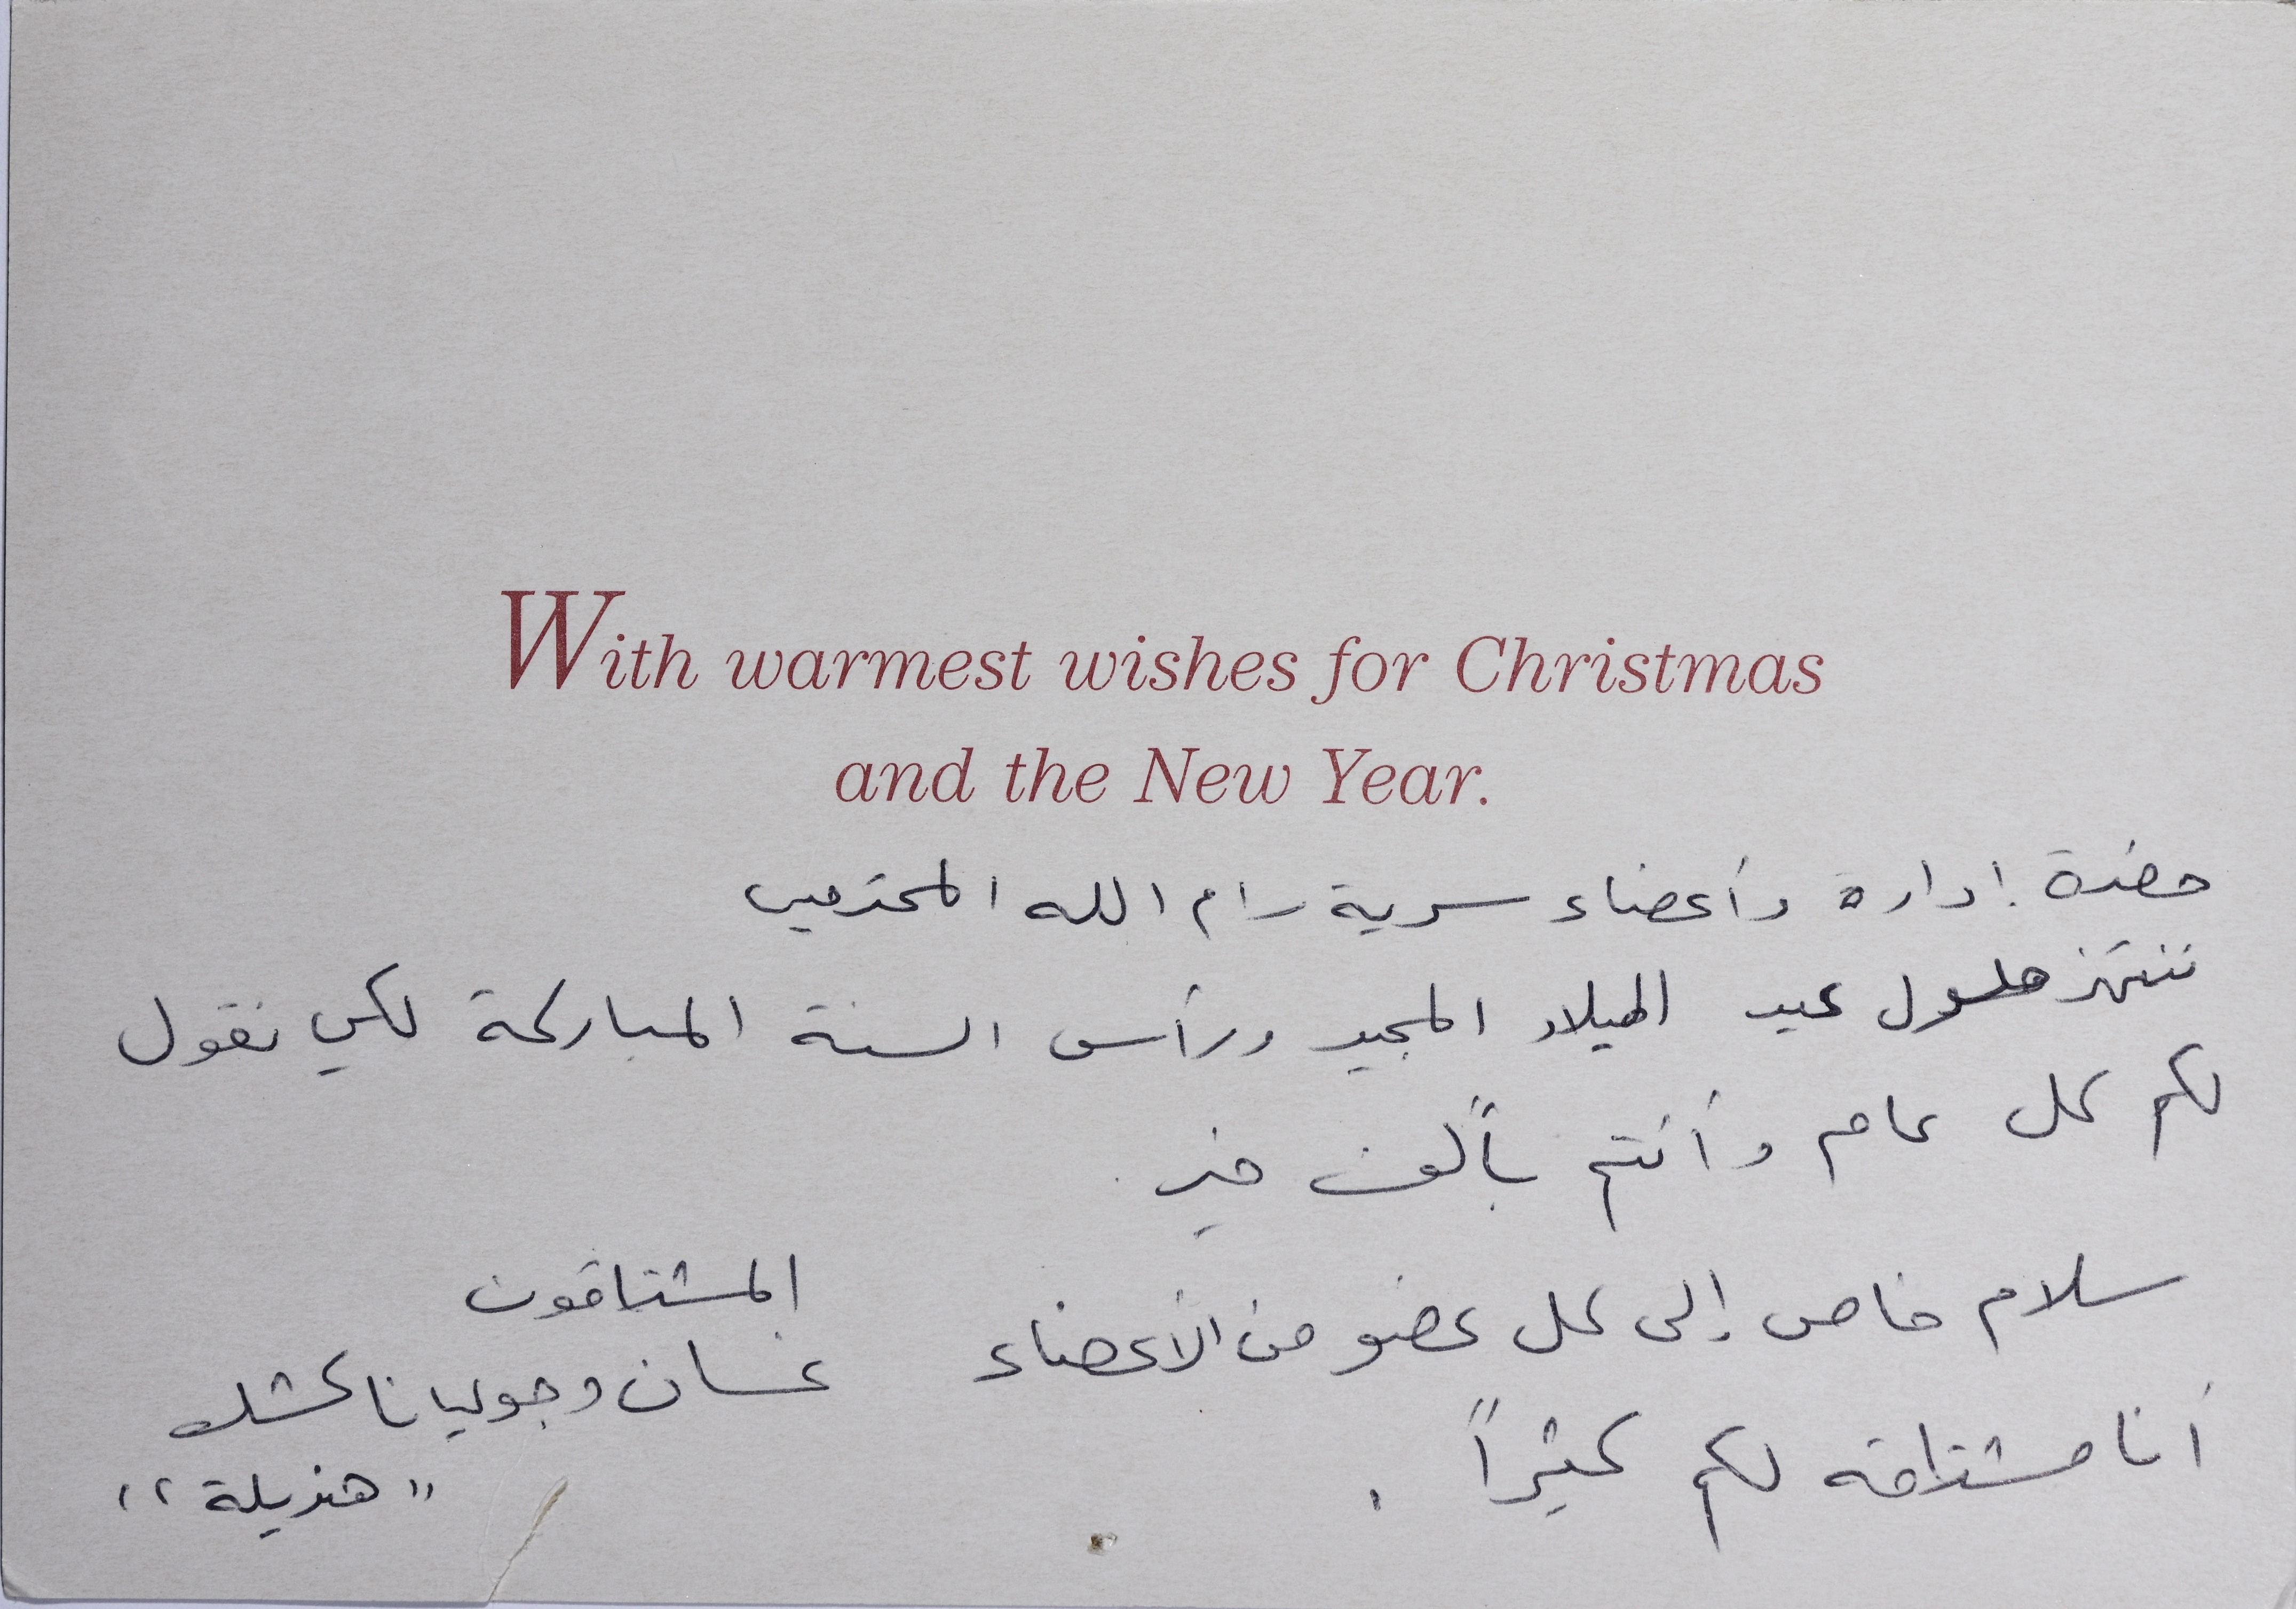 With warmest wishes for Christmas
and the New Year.
حضرة إدارة وأعضاء سرية رام الله المحترمين
ننتهز حلول عيد الميلاد المجيد ورأس السنة المباركة لكي نقول
لكم كل عام وأنتم بألف خير.
سلام خاص إلى كل عضو من الأعضاء
أنا مشتاقة لكم كثيراً.
المشتاقون
غسان وجوليانا كشك
"هزيلة"